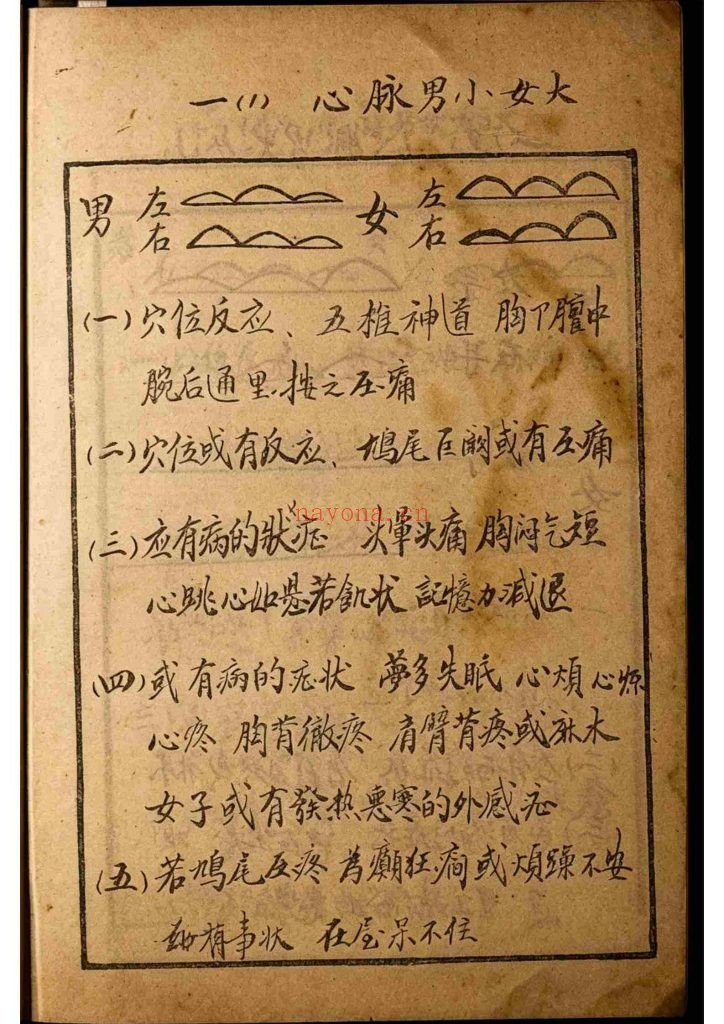 一(1) 心脉男小女大
男 左 右 女 左 右
(一)穴位反应、五椎神道 胸下膻中
腕后通里.按之压痛
(二)穴位或有反应、鳩尾巨闕或有压痛
nayona.cn
(三)应有病的狀症 头暈头痛 胸闷气短
心跳心如悬若飢状 記憶力減退
(四)或有病的症状 夢多失眠 心煩心惊
心疼 胸背徹疼 肩臂背疼或麻木
女子或有發热悪寒的外感症
(五)若鳩尾压疼 為癲狂癇或煩躁不安
有事状 在屋呆不住